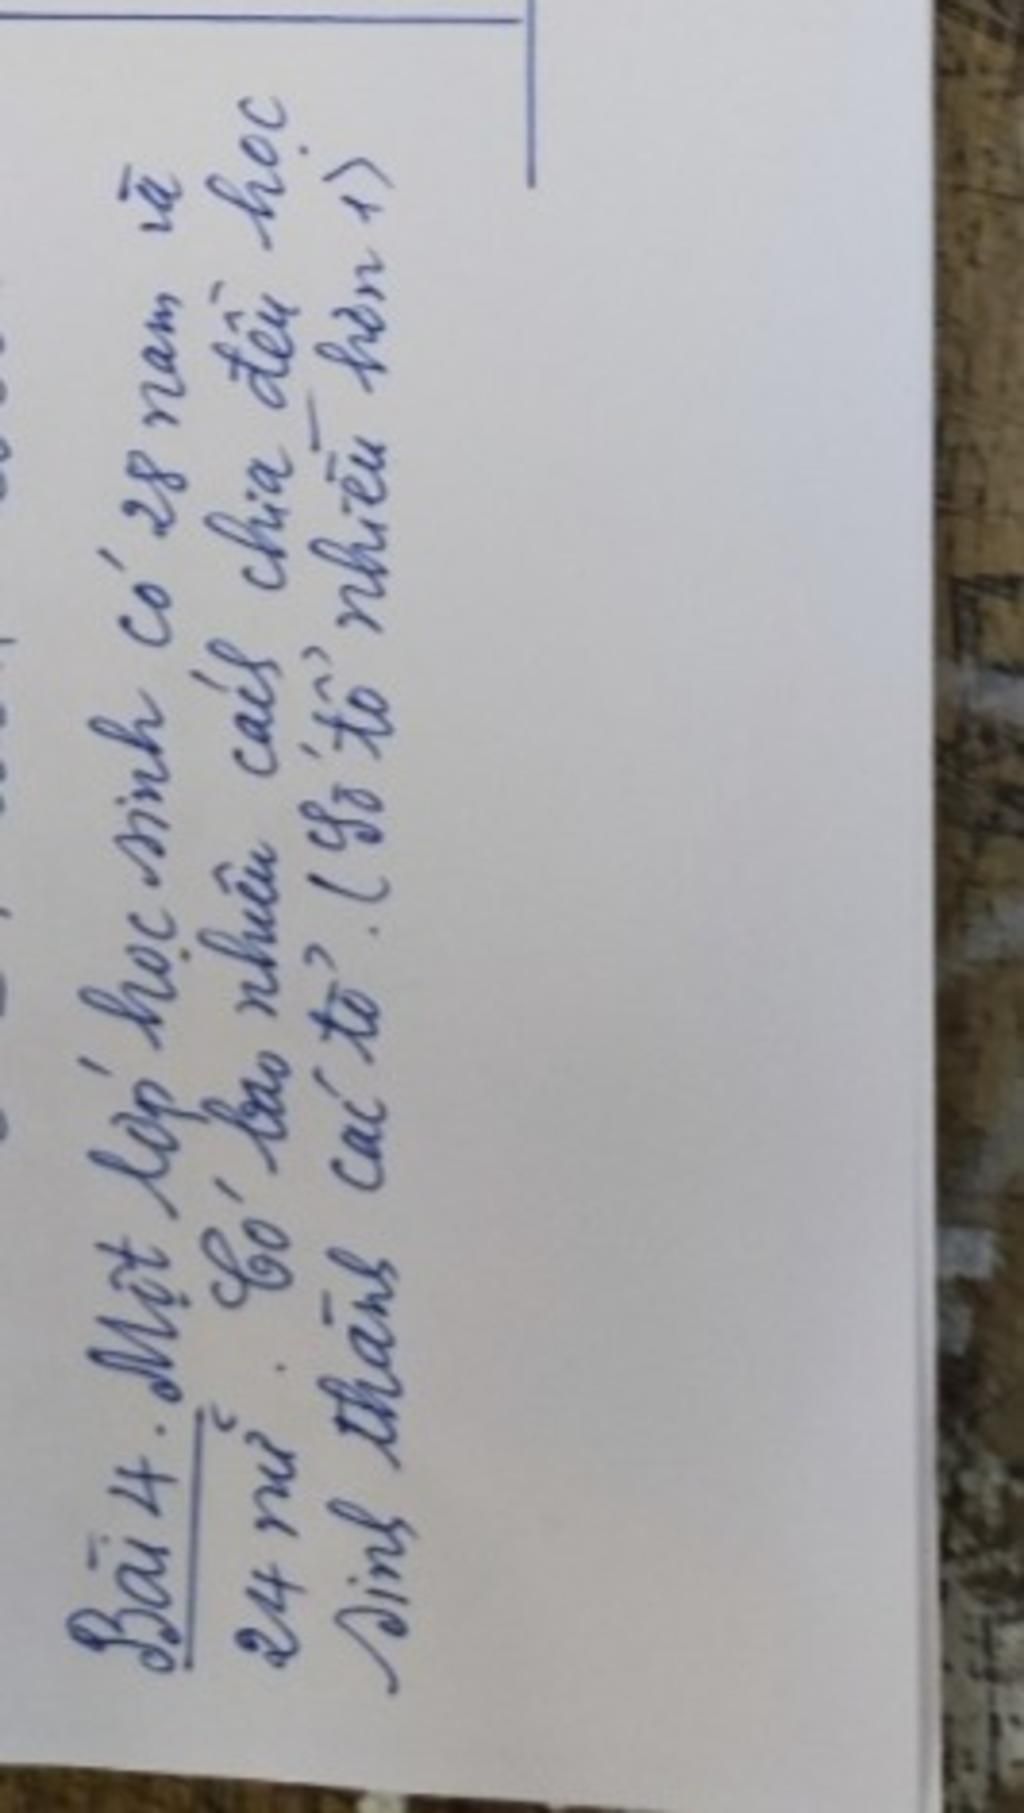 Bài 4. Một lớp học sinh có 28 nam và
24 nữ. Có bao nhiêu cách chia đều học
sinh thành các tổ. (Số tổ nhiều hơn 1)